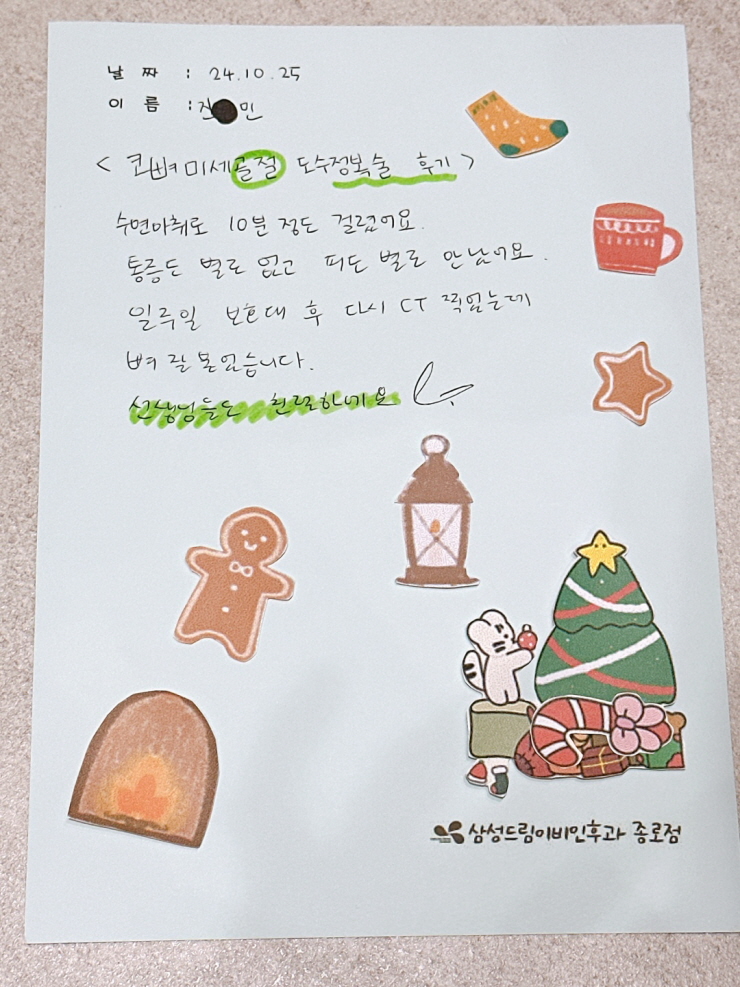 날 짜 : 24.10.25
이 름 : 진 민
< 코뼈 미세골절 도수정복술 후기 >
수면마취로 10분 정도 걸렸어요.
통증도 별로 없고 피도 별로 안났어요.
일주일 보호대 후 다시 CT 찍었는데
뼈 잘 붙었습니다.
선생님들도 친절하네요
삼성드림이비인후과 종로점